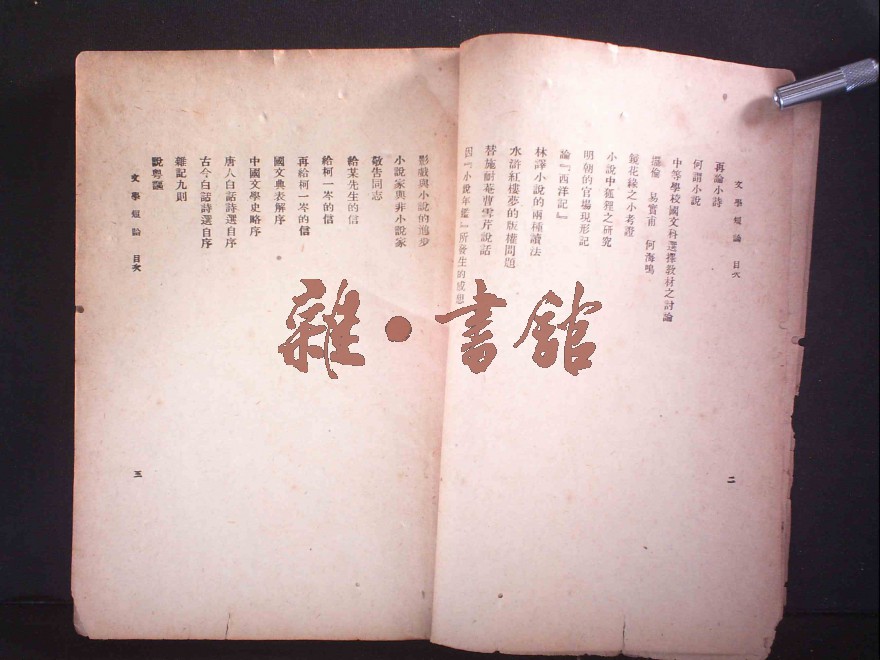 文學短論 目次
再論小詩
何謂小說
中等學校國文科選擇敎材之討論
易實甫 何海鳴
鏡花緣之小考證
小說中狐狸之研究
明朝的官場現形記
論『西洋記』
林譯小說的兩種讀法
水滸紅樓夢的版權問題
替施耐菴曹雪芹說話
因『小說年鑑』所發生的感想
二
影戲與小說的進步
小說家與非小說家
敬告同志
給某先生的信
給柯一岑的信
再給柯一岑的信
國文典表解序
中國文學史略序
唐人白話詩選自序
古今白話詩選自序
雜記九則
說粵謳
文學短論 目次
三
雜·書館